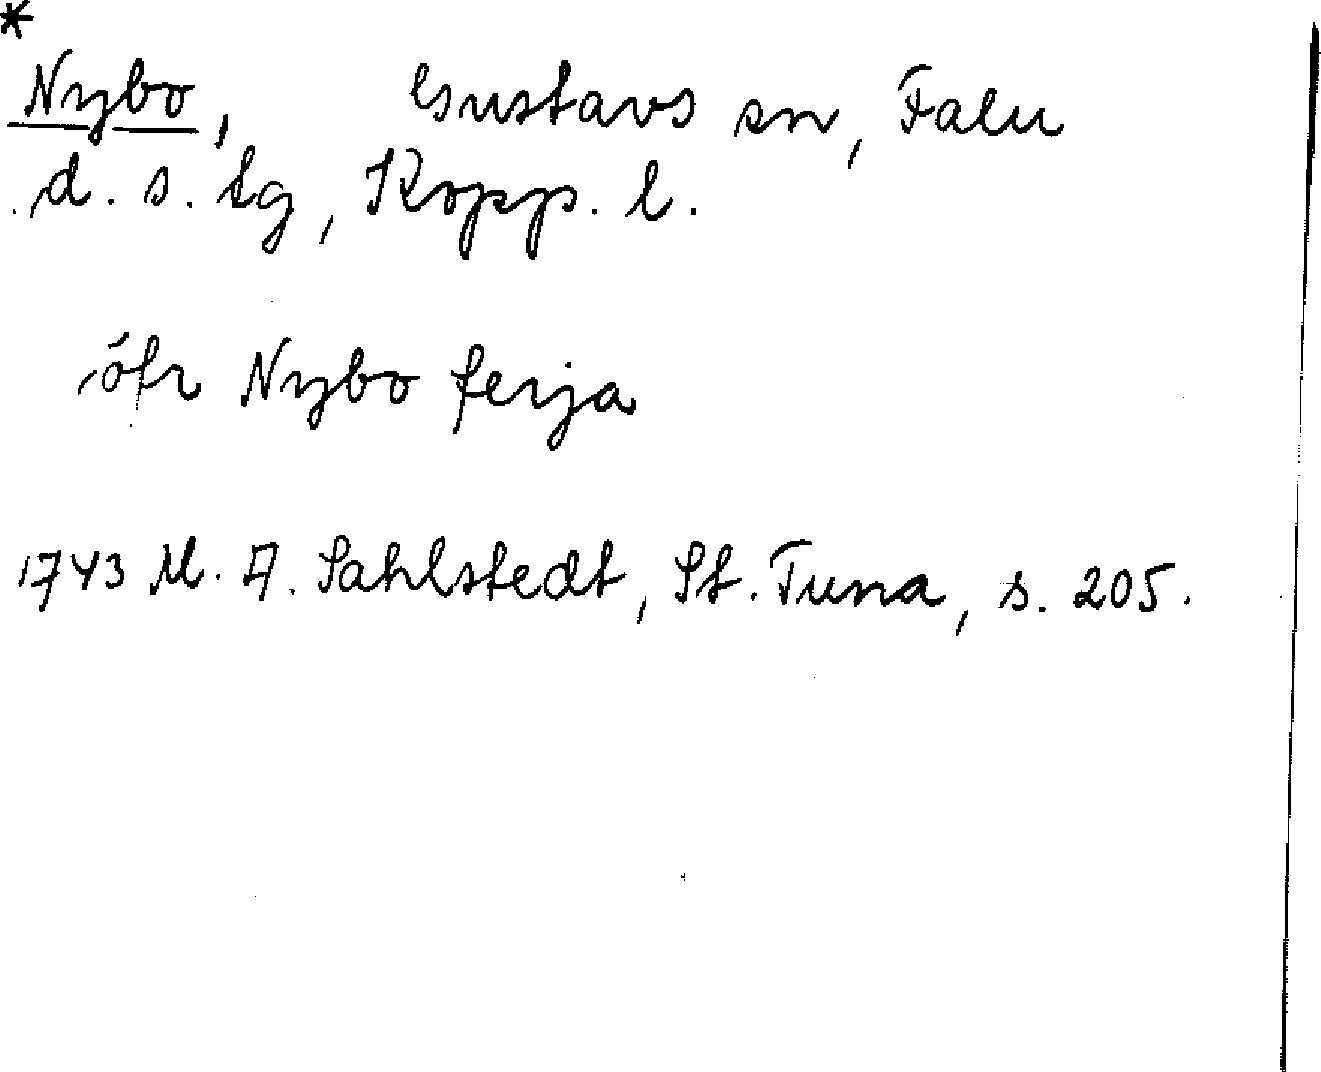 *
Nybo, Gustavs sn, Falu
d. s. lg, Kopp. l.
öfr Nybo ferja
1743 M. A. Sahlstedt, St. Tuna, s. 205.